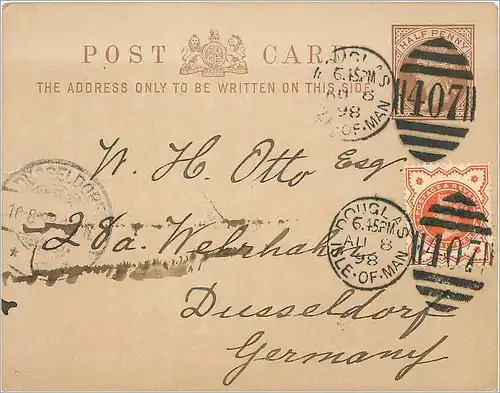 HALF PENNY
POST CARD
THE ADDRESS ONLY TO BE WRITTEN ON THIS SIDE.
DOUGLAS
6.45PM
AU 8
98
ISLE-OF-MAN
407
W. H. Otto Esq
POSTAGE & REVENUE
DOUGLAS
6.45PM
AU 8
98
ISLE·OF·MAN
407
28a. Welrhahn
Dusseldorf
Germany